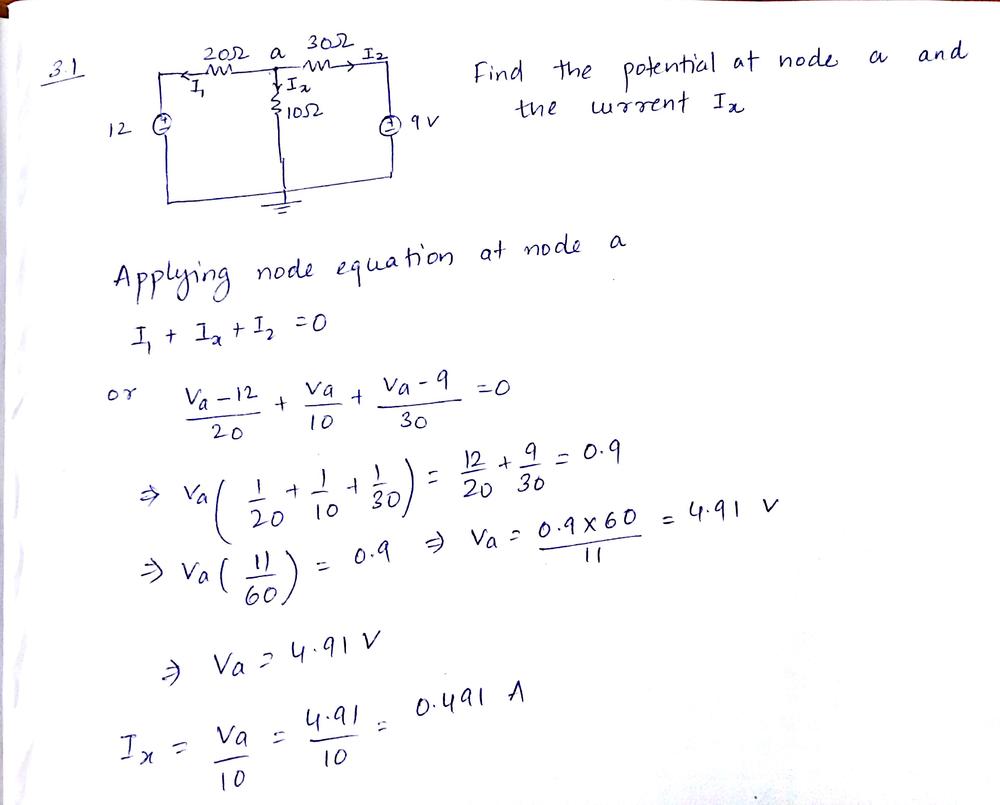 3.1
20Ω a 30Ω
I₁ Ix I₂
10Ω
12
9 V
Find the potential at node a and
the current Ix
Applying node equation at node a
I₁ + Ix + I₂ = 0
or (Va - 12)/20 + Va/10 + (Va - 9)/30 = 0
⇒ Va(1/20 + 1/10 + 1/30) = 12/20 + 9/30 = 0.9
⇒ Va(11/60) = 0.9 ⇒ Va = (0.9 × 60)/11 = 4.91 V
⇒ Va = 4.91 V
Ix = Va/10 = 4.91/10 = 0.491 A